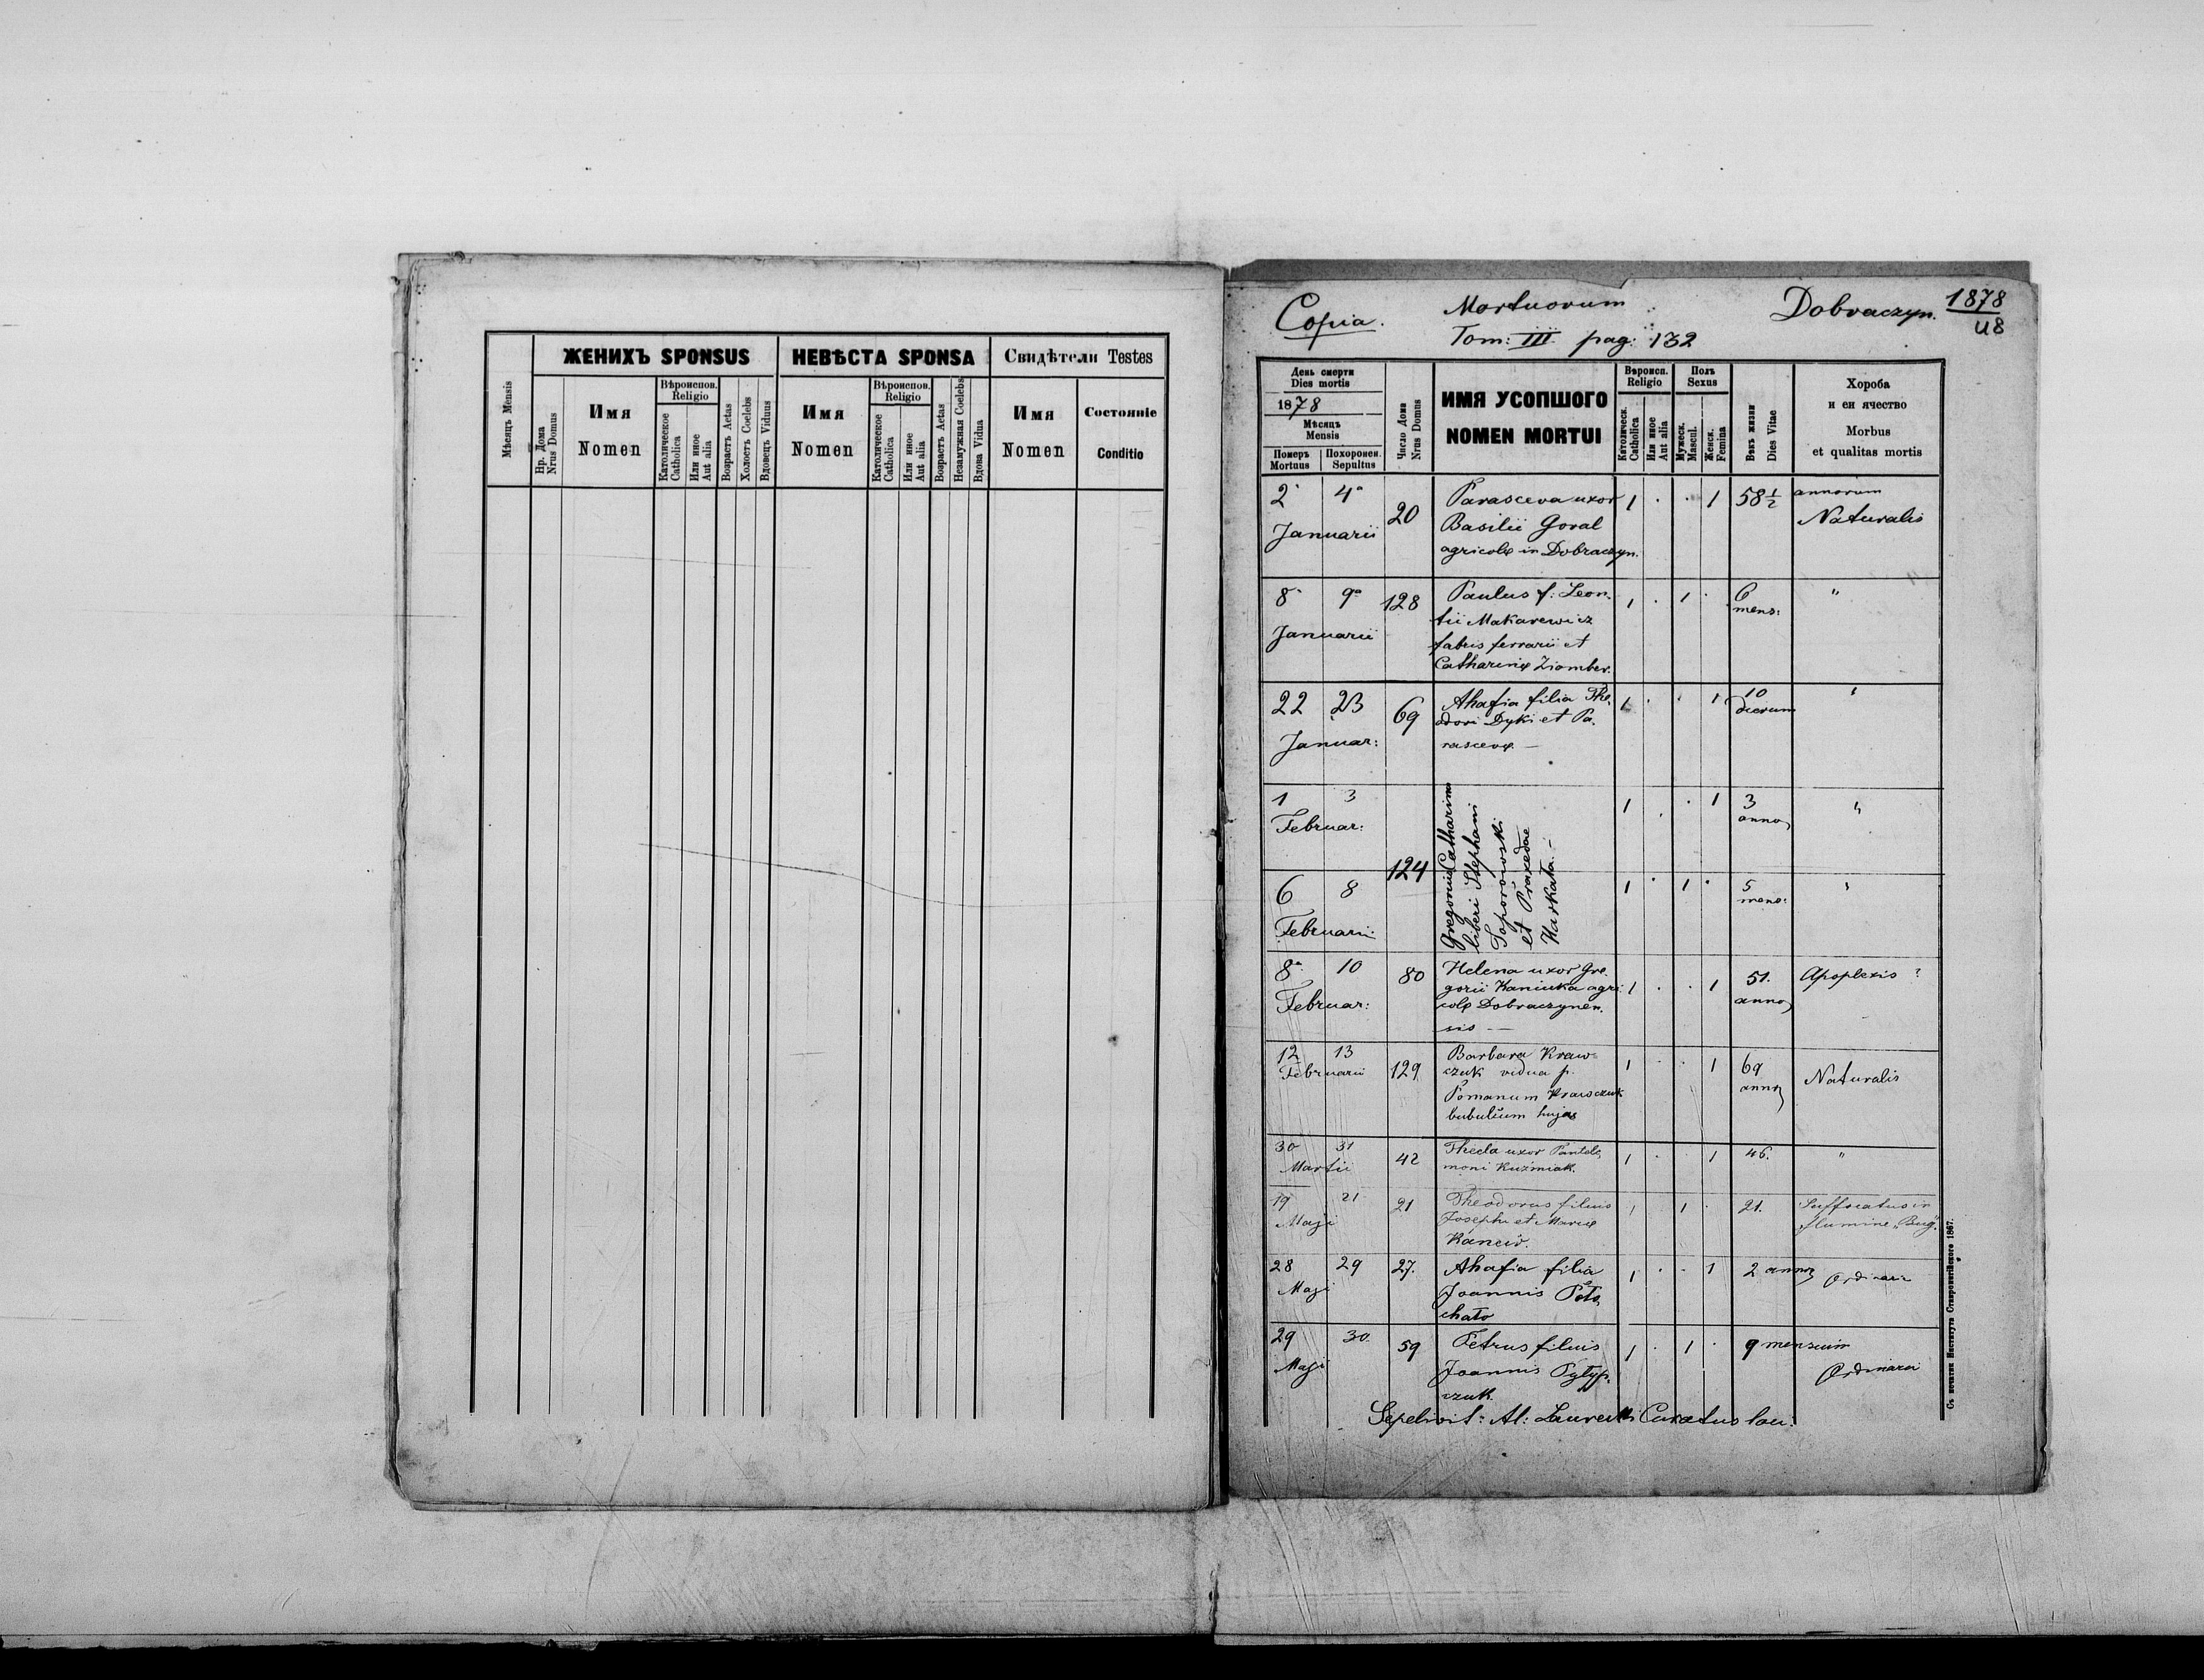 ЖЕНИХЪ SPONSUS
НЕВѢСТА SPONSA
Свидѣтели Testes
Мѣсяцъ Mensis
Нр. Дома
Nrus Domus
Имя
Nomen
Вѣроиспов.
Religio
Католическое
Catholica
Или иное
Aut alia
Возрастъ Aetas
Холостъ Coelebs
Вдовецъ Viduus
Имя
Nomen
Вѣроиспов.
Religio
Католическое
Catholica
Или иное
Aut alia
Возрастъ Aetas
Незамужная Coelebs
Вдова Vidua
Имя
Nomen
Состояніе
Conditio
Copia.
Mortuorum
Tom: III pag: 132
Dobraczyn.
1878
118
День смерти
Dies mortis
1878
Мѣсяцъ
Mensis
Померъ
Mortuus
Похоронен.
Sepultus
Число Дома
Nrus Domus
ИМЯ УСОПШОГО
NOMEN MORTUI
Вѣроисп.
Religio
Католическ.
Catholica
Или иное
Aut alia
Полъ
Sexus
Мужеск.
Mascul.
Женск.
Femina
Вѣкъ жизни
Dies Vitae
Хороба
и еи ячество
Morbus
et qualitas mortis
2 4
Januarii
20
Parasceva uxor
Basilii Goral
agricolæ in Dobraczyn.
1 . . 1
58 1/2 annorum
Naturalis
8 9
Januarii
128
Paulus f: Leon-
tii Makarewicz
fabris ferrarii et
Catharinæ Ziomber.
1 . 1 .
6
mens:
"
22 23
Januar:
69
Ahafia filia The-
odori Dyki et Pa-
rascevæ —
1 . . 1
10
dierum
"
1 3
Februar:
124
Gregorius Catharina
liberi Stephani
Toporowski
et Praxedae
Harkata. —
1 . . 1
3
anno
"
6 8
Februarii
1 . 1 .
5
mens:
"
8 10
Februar:
80
Helena uxor Gre-
gorii Kaniuka agri-
colæ Dobraczynen-
sis —
1 . . 1
51.
anno
Apoplexis ?
12 13
Februarii
129
Barbara Kraw-
czuk vidua p.
Romanum Krawczuk
bubulcum hujas
1 . . 1
69
anno
Naturalis
30 31
Martii
42
Thecla uxor Pantele-
moni Kuźmiak.
1 . . 1
46.
"
19 21
Maji
21
Theodorus filius
Josephi et Mariæ
Kanciv.
1 . 1 .
21.
Suffocatus in
flumine „Bug".
28 29
Maji
27.
Ahafia filia
Joannis Poto-
chato
1 . . 1
2 anno
Ordinaria
29 30
Maji
59
Petrus filius
Joannis Pyłyp-
czuk.
1 . 1 .
9 mensium
Ordinaria
Sepelivit: Al: Laurecki Curatus loci:
Съ печатни Института Ставропигійского 1867.